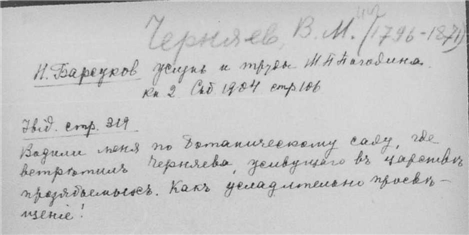 Черняев, В. М. (1796-1871)
Н. Барсуков жизнь и труды М П Погодина.
Кн 2 Спб 1904 стр 106
Ibid. стр. 319
Водили меня по Ботаническому саду, где
встрѣтилъ Черняева, живущаго въ царствѣ
прозябаемыхъ. Какъ усладительно просвѣ-
щеніе!